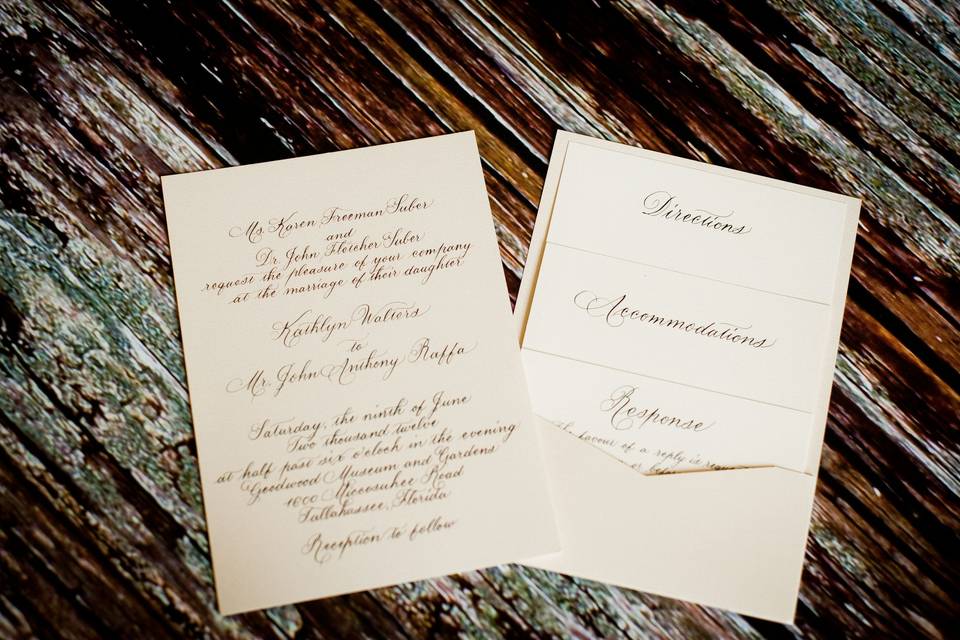 Ms. Karen Freeman Suber
and
Dr. John Fletcher Suber
request the pleasure of your company
at the marriage of their daughter
Kathlyn Walters
to
Mr. John Anthony Raffa
Saturday, the ninth of June
Two thousand twelve
at half past six o'clock in the evening
Goodwood Museum and Gardens
1600 Miccosukee Road
Tallahassee, Florida
Reception to follow
Directions
Accommodations
Response
the favour of a reply is